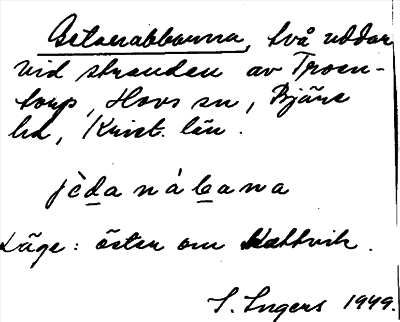 Getanabbarna, två uddar
vid stranden av Troen-
torp, Hovs sn, Bjäre
hd, Krist. län.
jèdanábana
Läge: öster om Kattvik.
I. Ingers 1949.